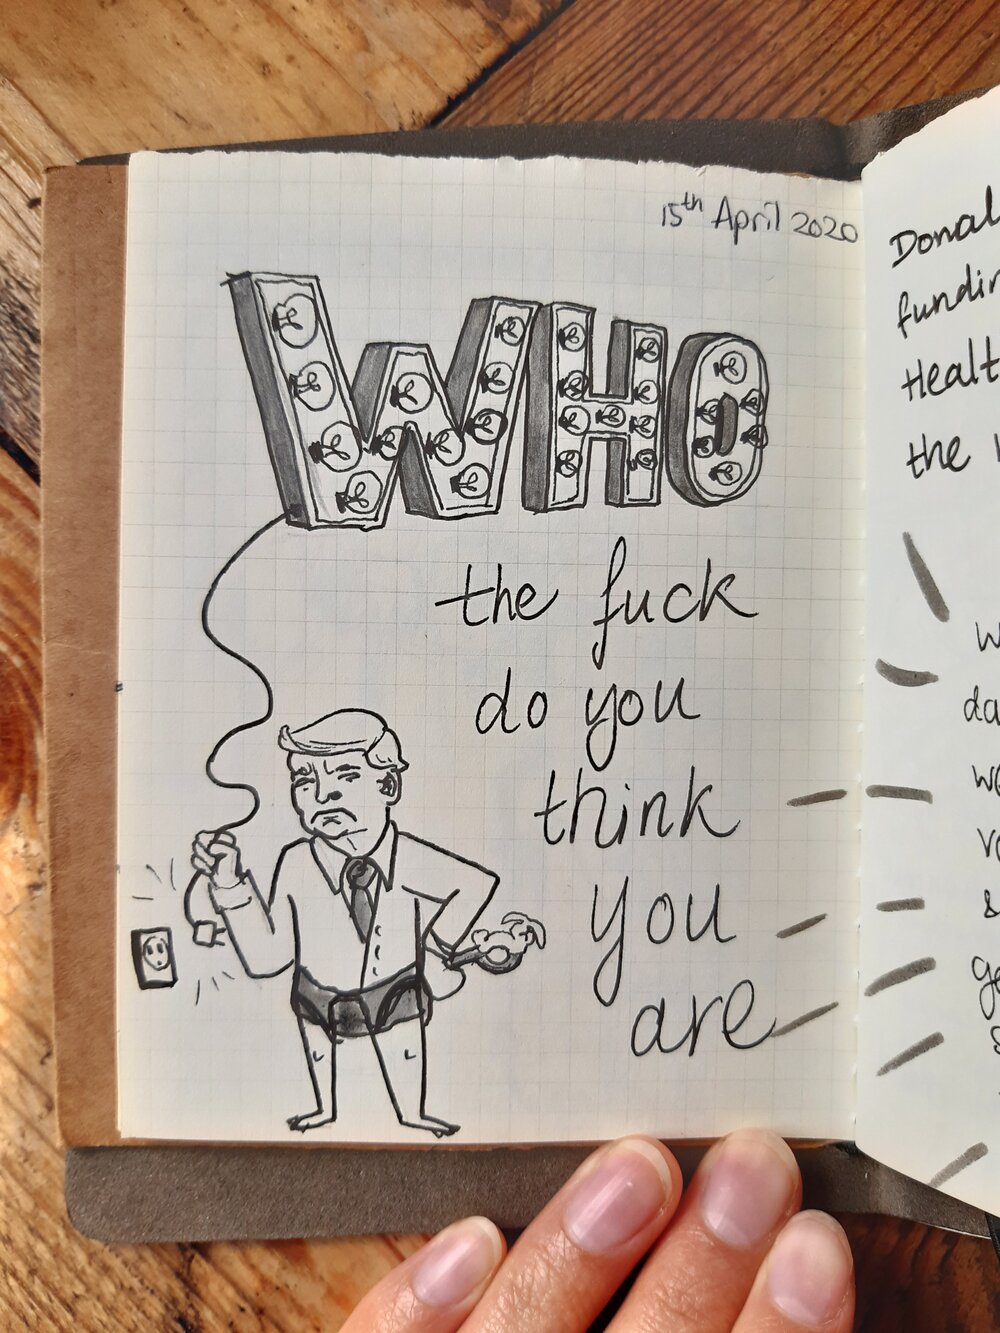 15th April 2020
WHO
the fuck
do you
think
you
are
Donal
fundin
Healt
the